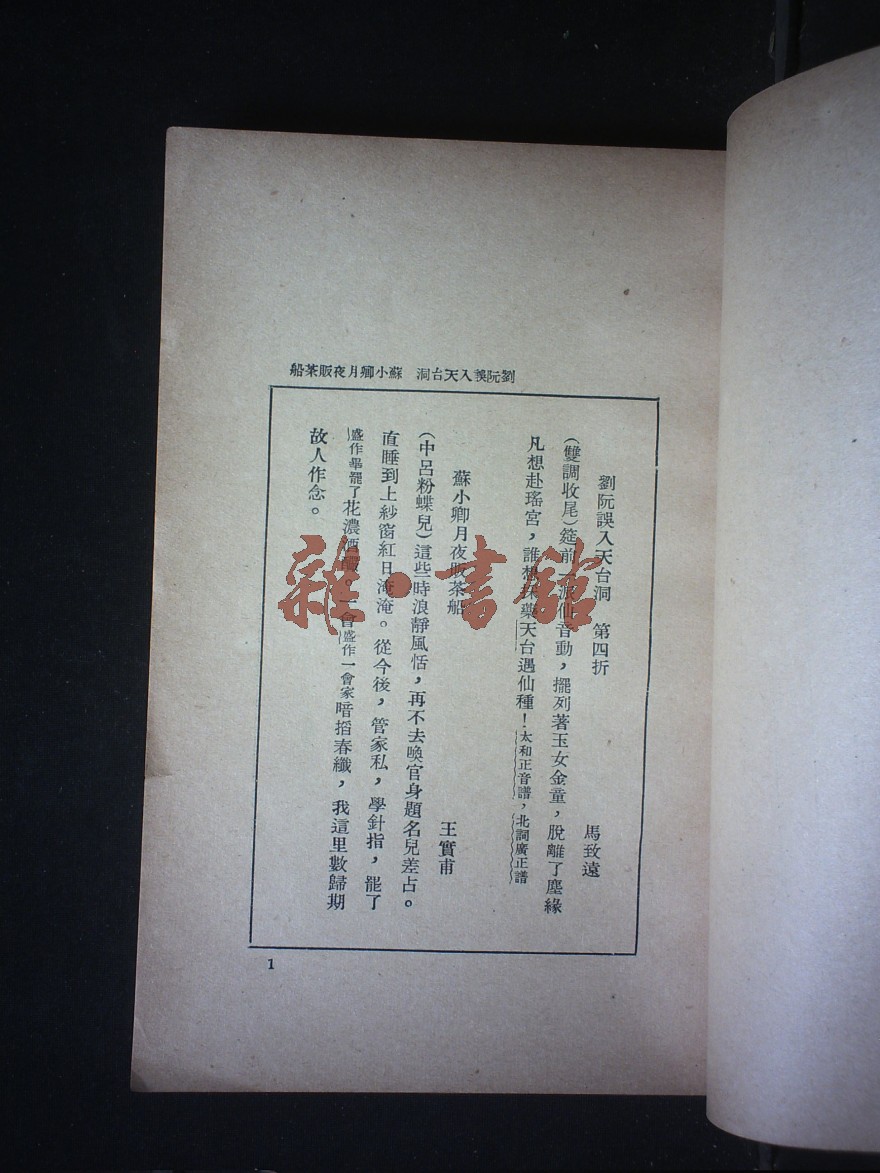 劉阮誤入天台洞　蘇小卿月夜販茶船
劉阮誤入天台洞　第四折　馬致遠
(雙調收尾)筵前一派仙音動，擺列著玉女金童，脫離了塵緣
凡想赴瑤宮，誰想採藥天台遇仙種！太和正音譜，北詞廣正譜
蘇小卿月夜販茶船　王實甫
(中呂粉蝶兒)這些時浪靜風恬，再不去喚官身題名兒差占。
直睡到上紗窗紅日淹淹。從今後，管家私，學針指，罷了
盛作畢罷了花濃酒釅。一會盛作一會家暗掐春纖，我這里數歸期
故人作念。
1
雜·書館